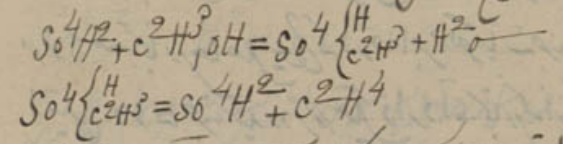 So⁴H² + c²H³, oH = So⁴ { H c²H³ + H²o
So⁴ { H c²H³ = So⁴H² + c²H⁴